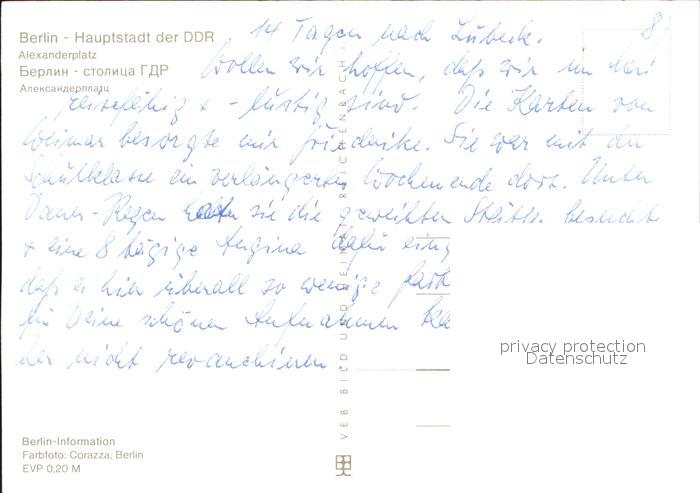 Berlin - Hauptstadt der DDR
Alexanderplatz
Берлин - столица ГДР
Александерплатц
8)
14 Tagen nach Lübeck.
Wollen wir hoffen, daß wir im Mai
reisefähig + - lustig sind. Die Karten von
Weimar besorgte mir Friederike. Sie war mit der
Schulklasse ein verlängertes Wochenende dort. Unter
Dauer-Regen hatten sie die geweihten Stätten besucht
+ eine 8 tägige Angina dafür eing
daß es hier überall so wenige
für Deine schönen Aufnahmen
nicht revanchieren.
privacy protection
Datenschutz
VEB BILD UND HEIMAT REICHENBACH
Berlin-Information
Farbfoto: Corazza, Berlin
EVP 0,20 M